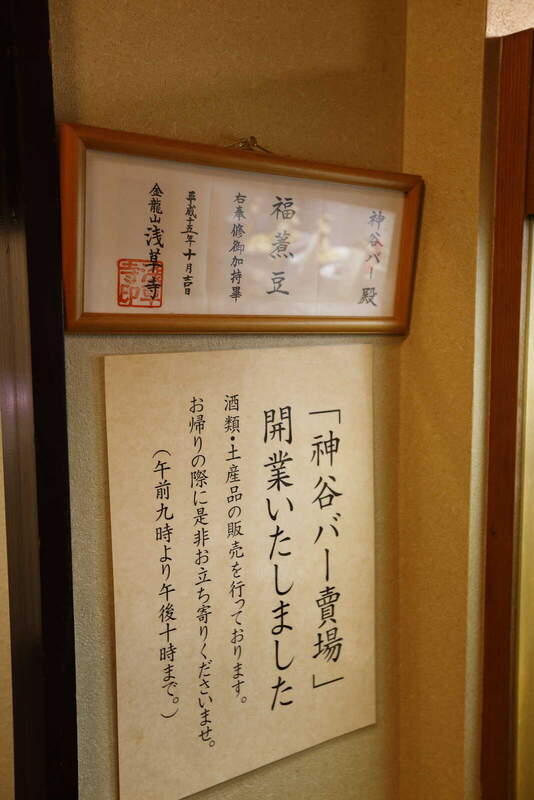 神谷バー殿
福煮豆
右奉修御加持畢
平成十五年十月吉日
金龍山浅草寺
「神谷バー賣場」
開業いたしました
酒類・土産品の販売を行っております。
お帰りの際に是非お立ち寄りくださいませ。
（午前九時より午後十時まで。）